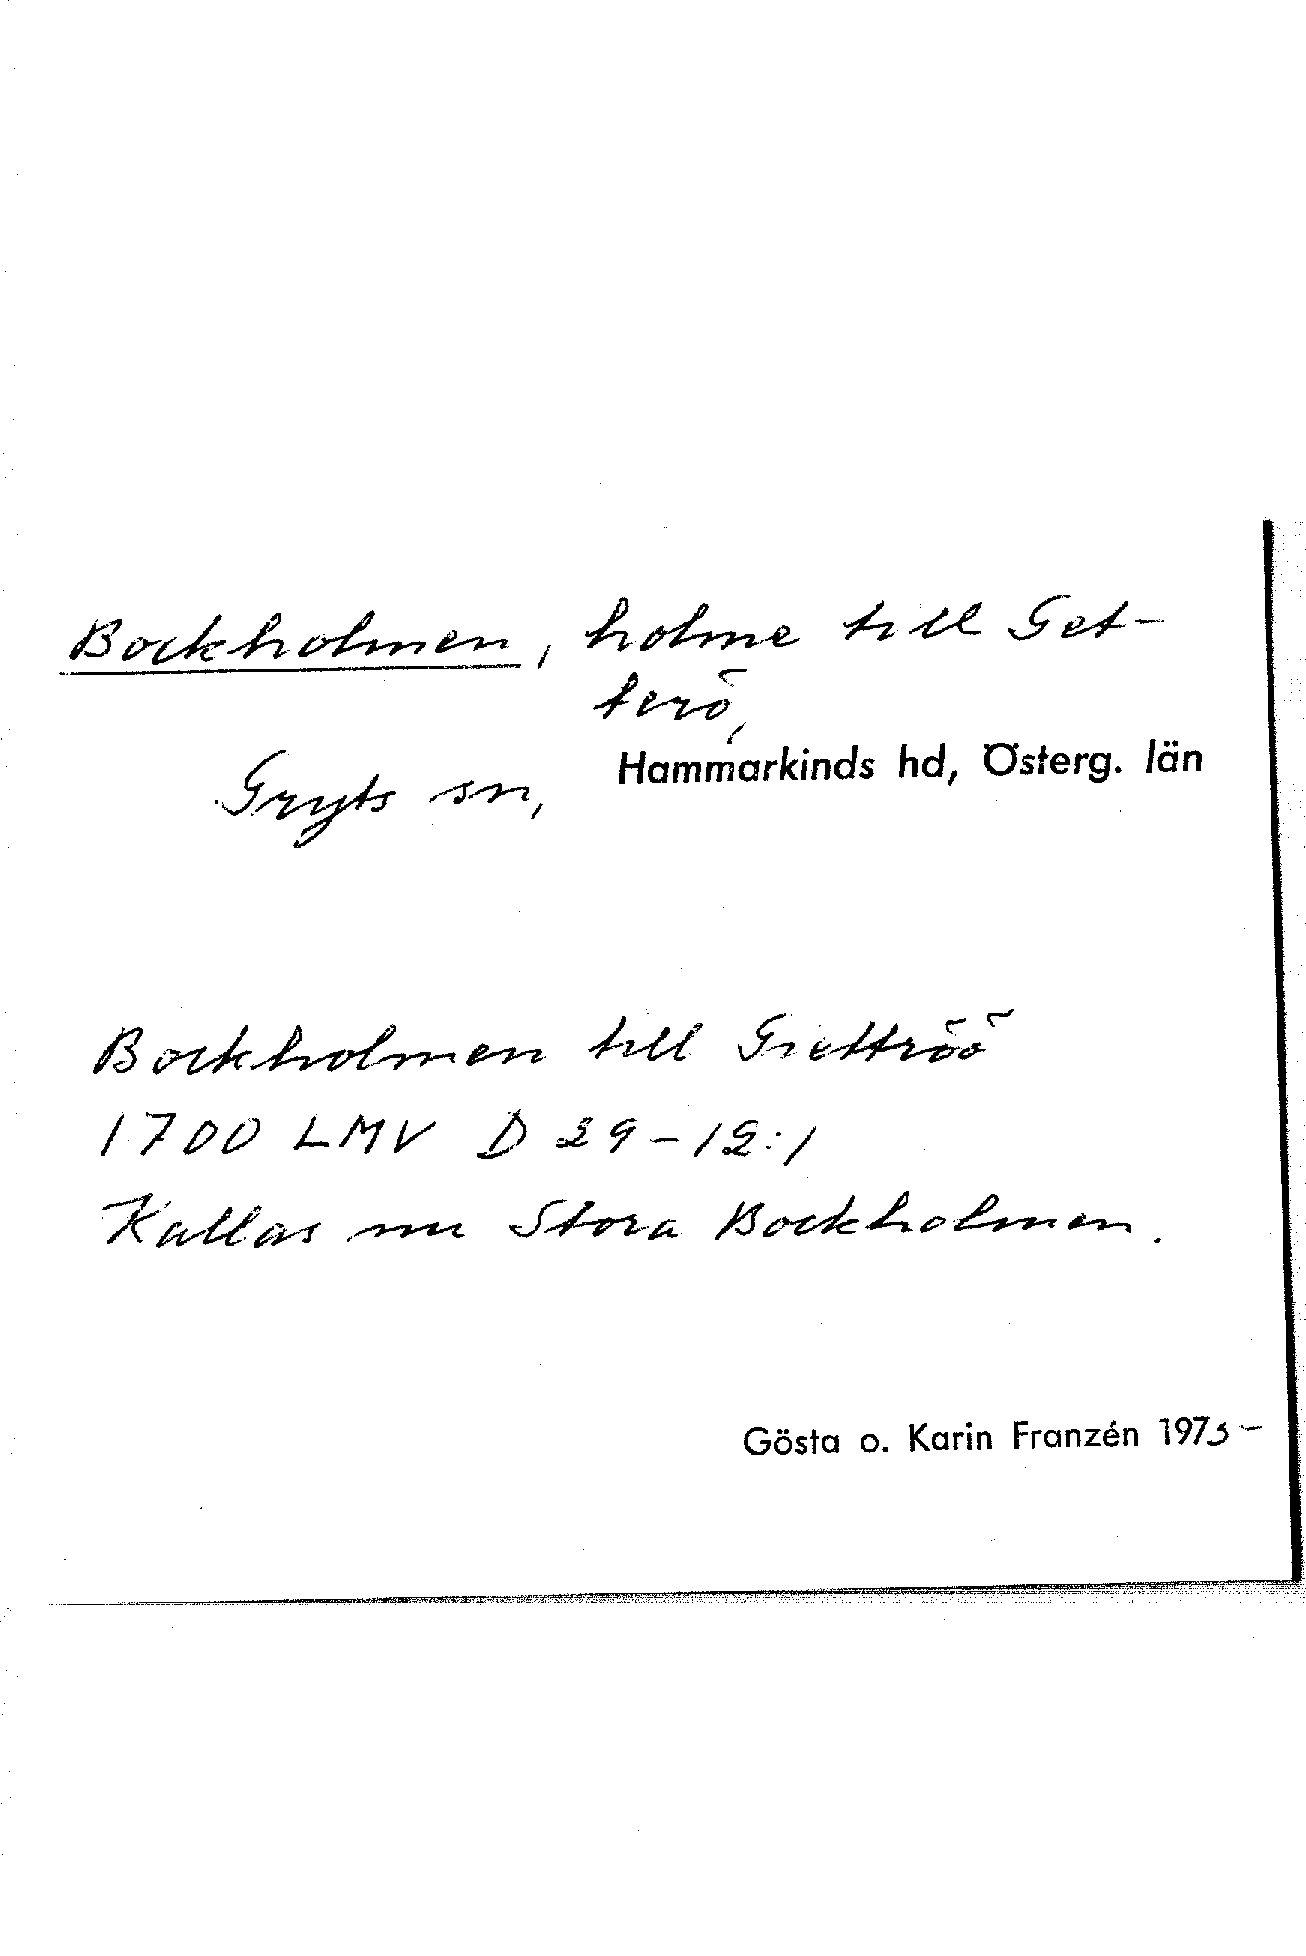 Bockholmen, holme till Get-
terö,
Gryts sn, Hammarkinds hd, Österg. län
Bockholmen till Giettröö
1700 LMV D 29-12:1
Kallas nu Stora Bockholmen.
Gösta o. Karin Franzén 1973-